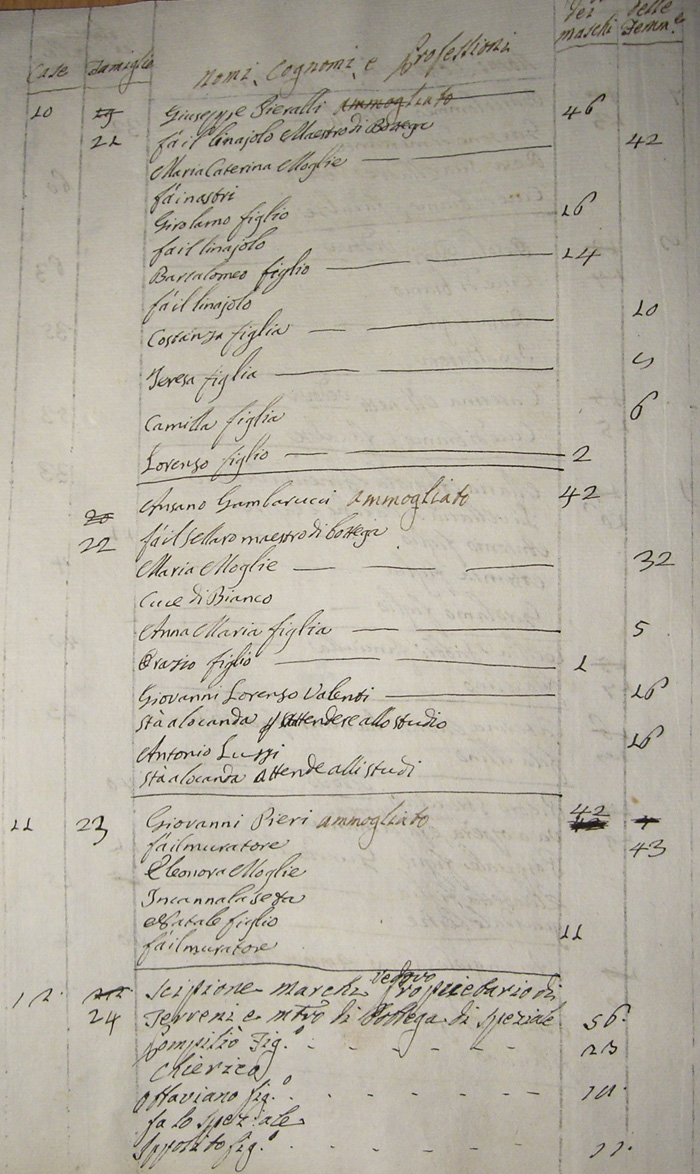 dei delle
Case Famiglie Nomi, Cognomi, e Professioni maschi Femm.e
10 19 Giuseppe Pieralli ammogliato 46
21 fà il linajolo Maestro di Bottega
Maria Caterina Moglie 42
fà i nastri
Girolamo figlio 16
fà il linajolo
Bartalomeo figlio 14
fà il linajolo
Costanza figlia 10
Teresa figlia
Camilla figlia 6
Lorenzo figlio 2
Ansano Gambarucci ammogliato 42
20
22 fà il Sellaro maestro di bottega
Maria Moglie 32
Cuce di Bianco
Anna Maria figlia 5
Orazio figlio 1
Giovanni Lorenzo Valenti 16
Stà a locanda attendere allo studio
Antonio Luzzi 16
Stà a locanda attende alli studi
11 23 Giovanni Pieri ammogliato 42
fà il muratore
Eleonora Moglie 43
Incanna la seta
Natale figlio 11
fà il muratore
12. Scipione Marchi Vedovo Propietario di
24 Terreni e mtro di Bottega di Speziale 56.
Pompilio Fig.o 23
Chierico
Ottaviano fig.o
fa lo speziale
Ippolito fig.o 11.